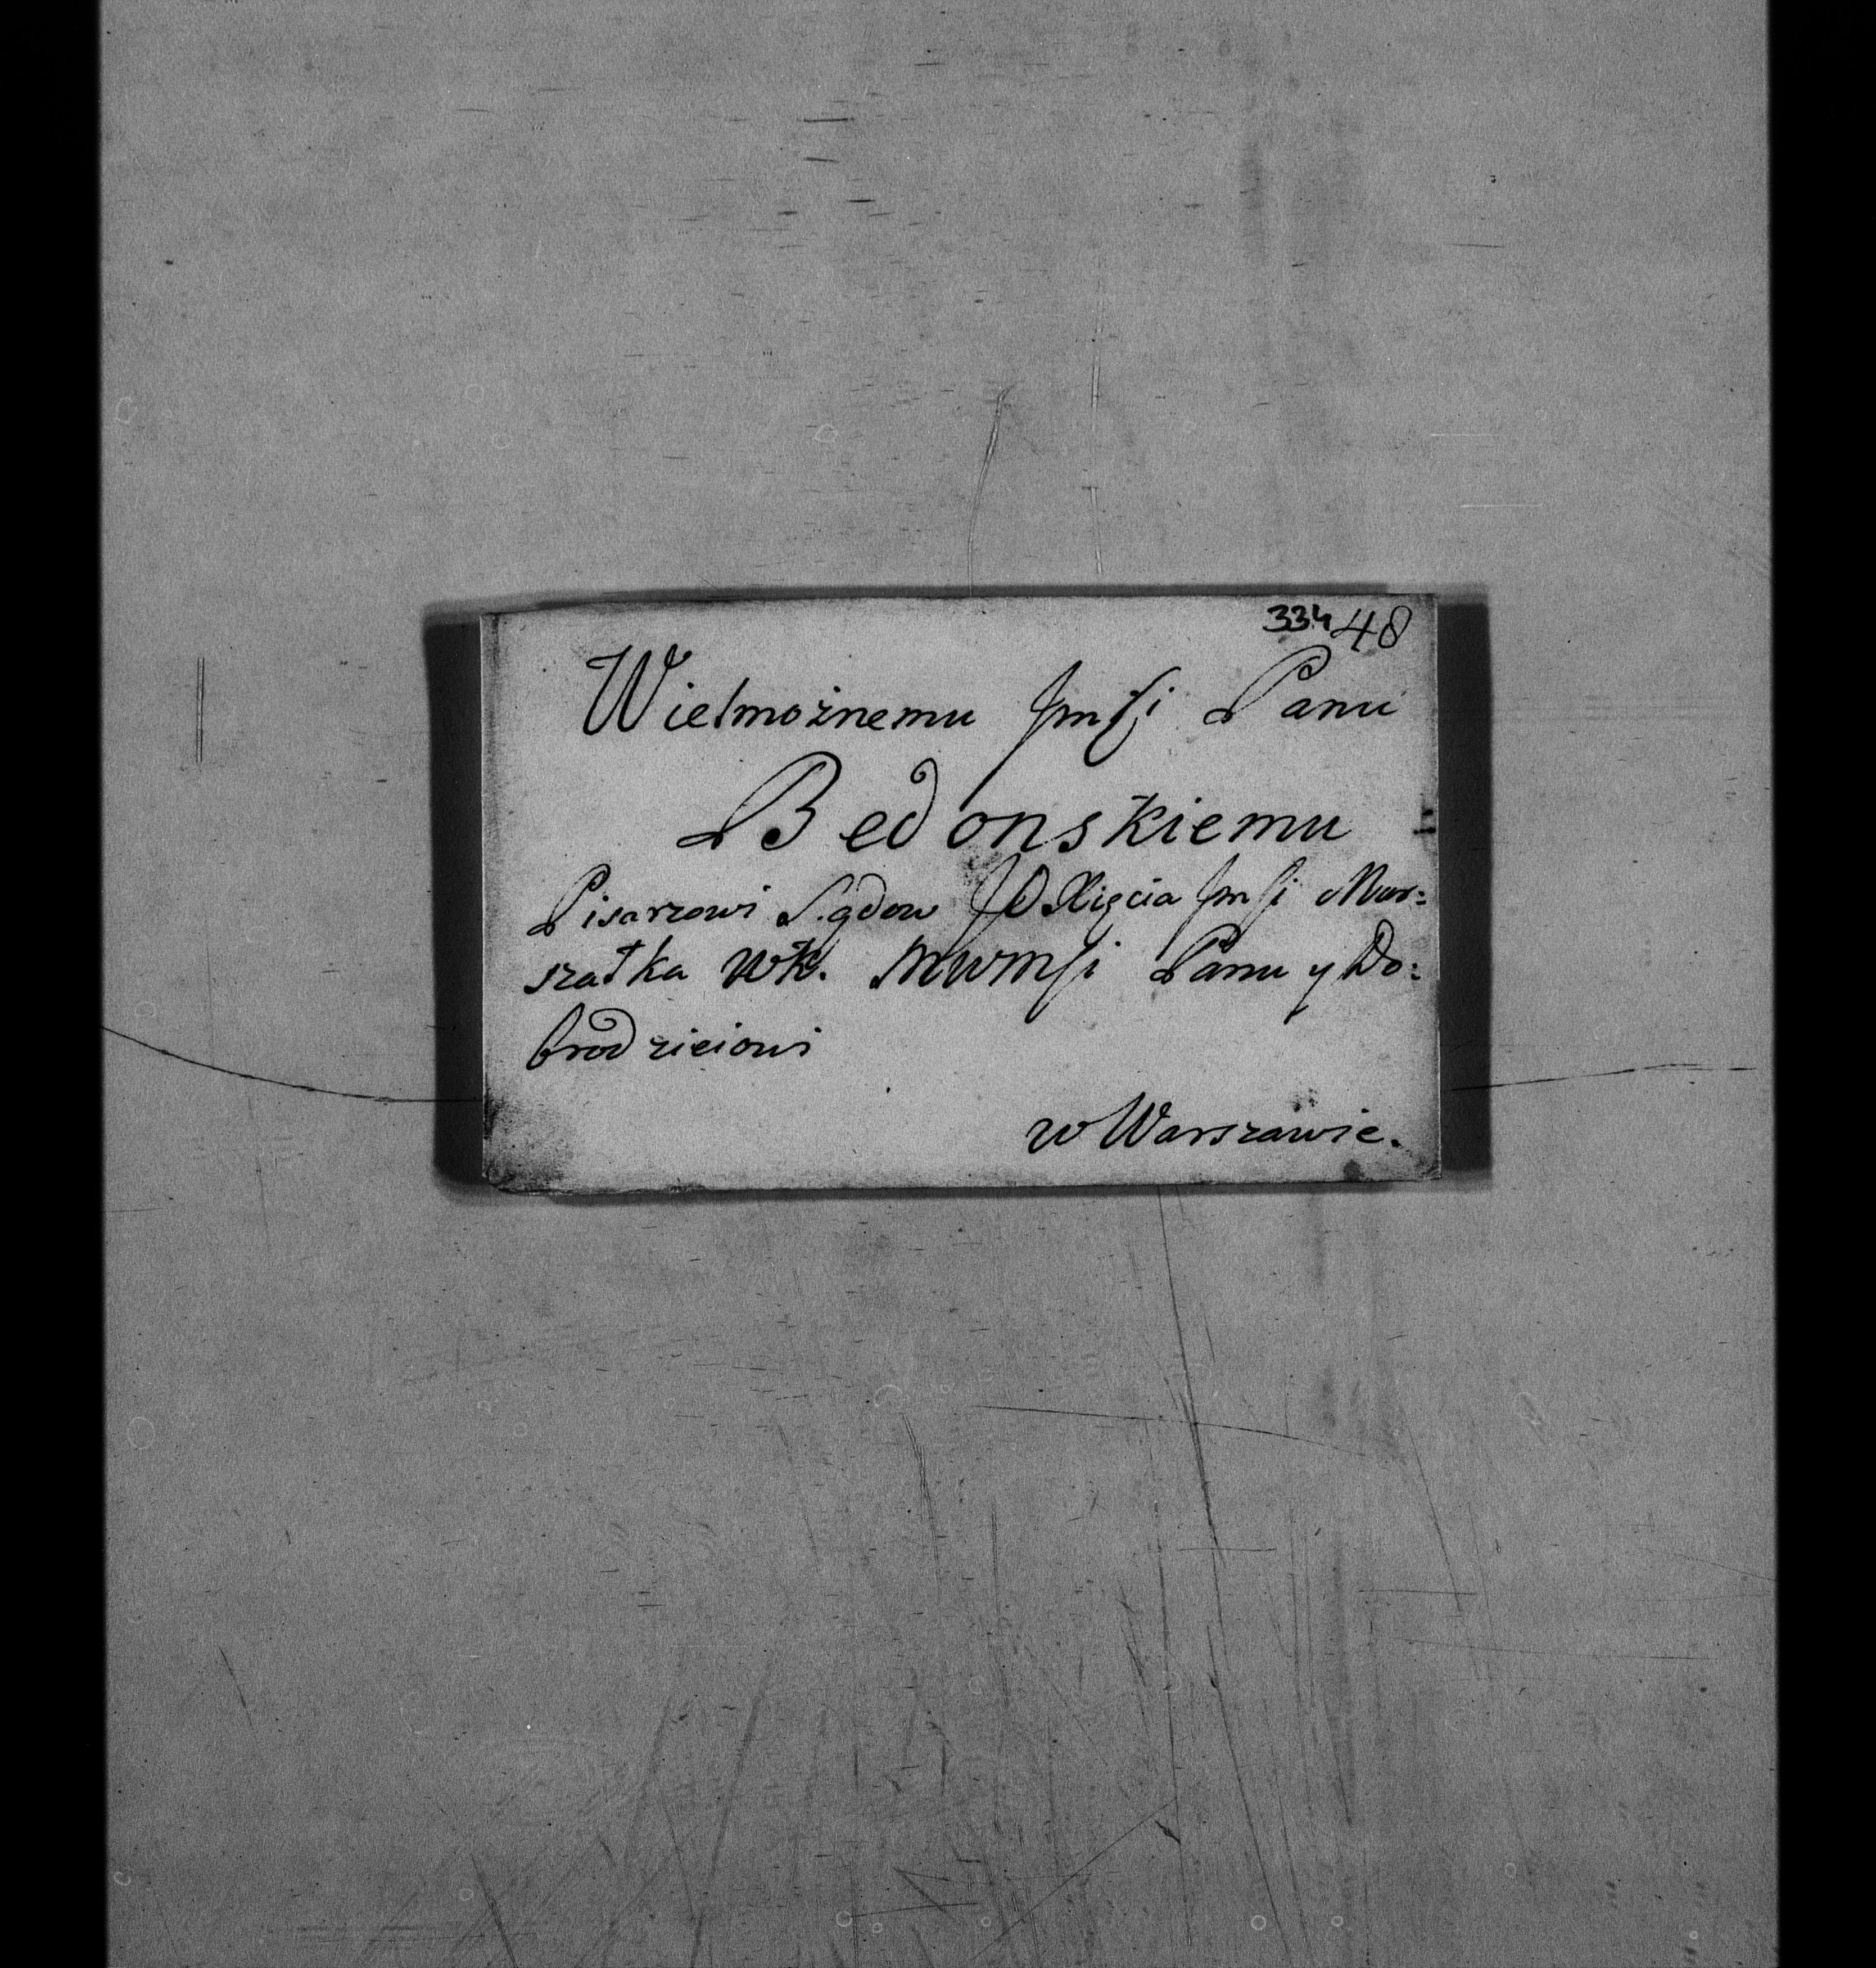 334 48
Wielmożnemu Jmsci Panu
Bedonskiemu
Pisarzowi Sądow JO Xięcia Jmsci Mar:
szałka WK. MWMsci Panu y Do:
brodzieiowi
w Warszawie.